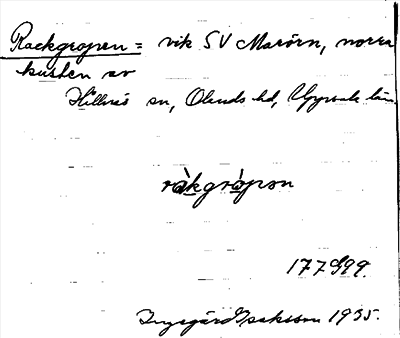 Rackgropen = vik SV Marörn, norra
kusten av
Hållnäs sn, Olands hd, Uppsala län.
råkgròpən
177S99.
Ingegärd Isaksson 1935.